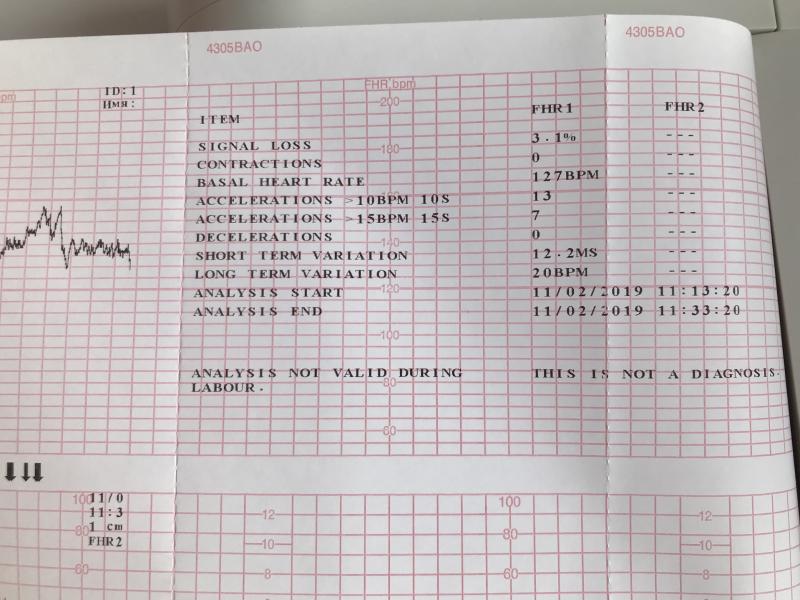 4305BAO
4305BAO
pm
FHR bpm
ID:1
Имя:
200
ITEM FHR1 FHR2
SIGNAL LOSS 3.1% ---
180
CONTRACTIONS 0 ---
BASAL HEART RATE 127BPM ---
160
ACCELERATIONS >10BPM 10S 13 ---
ACCELERATIONS >15BPM 15S 7 ---
DECELERATIONS 0 ---
140
SHORT TERM VARIATION 12.2MS ---
LONG TERM VARIATION 20BPM ---
120
ANALYSIS START 11/02/2019 11:13:20
ANALYSIS END 11/02/2019 11:33:20
100
ANALYSIS NOT VALID DURING THIS IS NOT A DIAGNOSIS.
80
LABOUR.
60
100 11/0
11:3
80 1 cm
FHR2
60
12
10
8
100
80
60
12
10
8